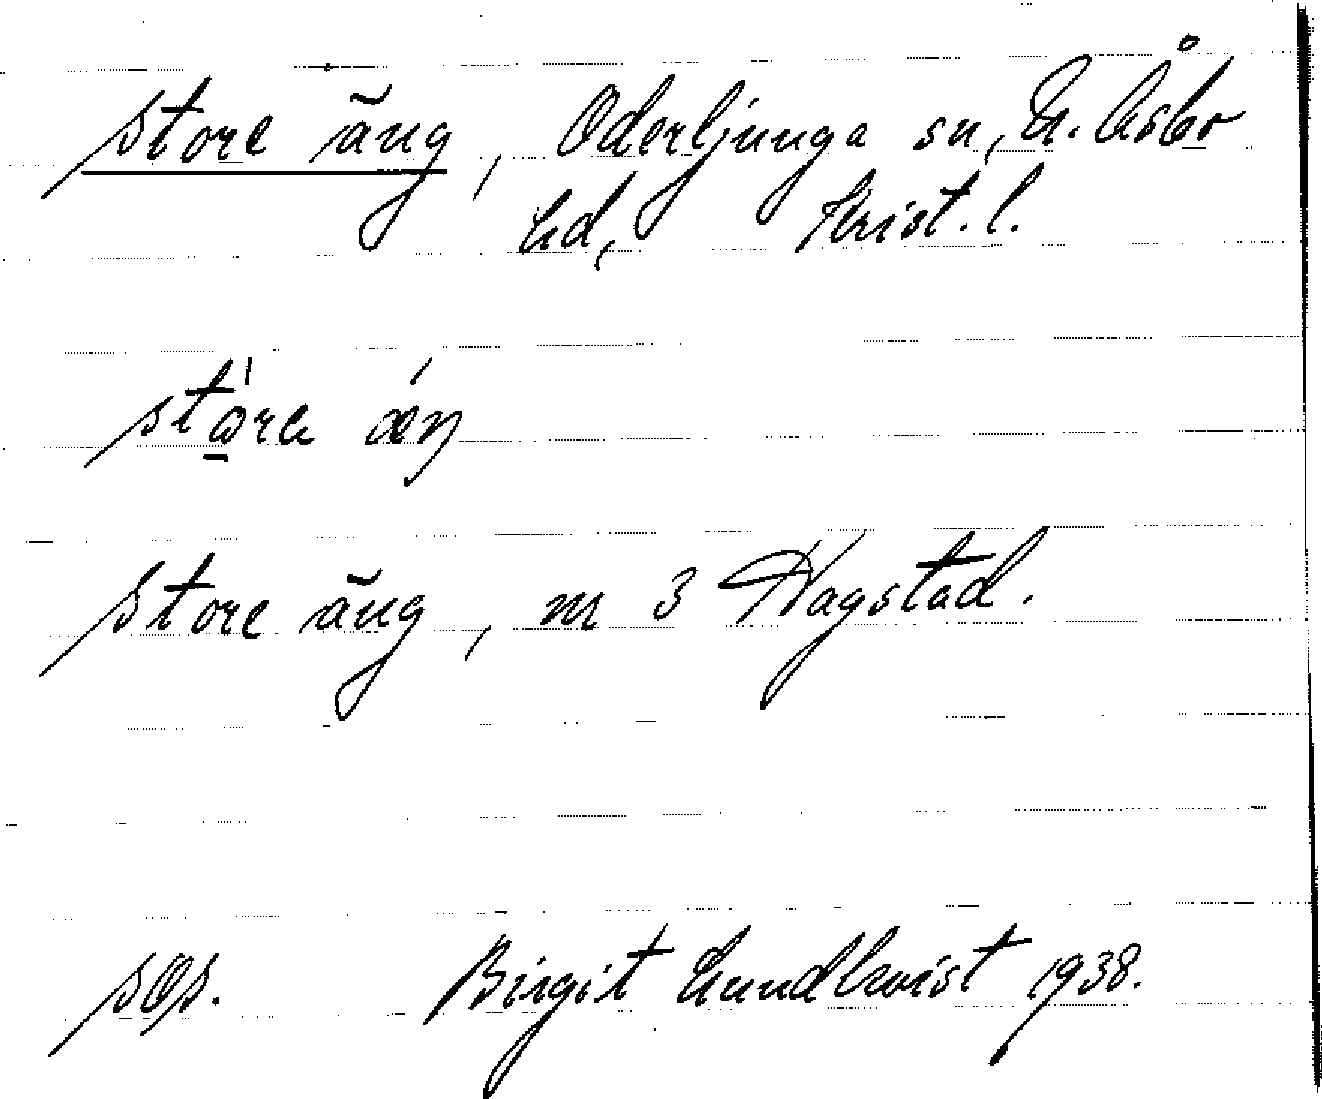 store äng, Oderljunga sn, N. Åsbo
hd, Krist. l.
stǫ̈re æ´ŋ
store äng, nr 3 Hagstad.
Birgit Lundkvist 1938.